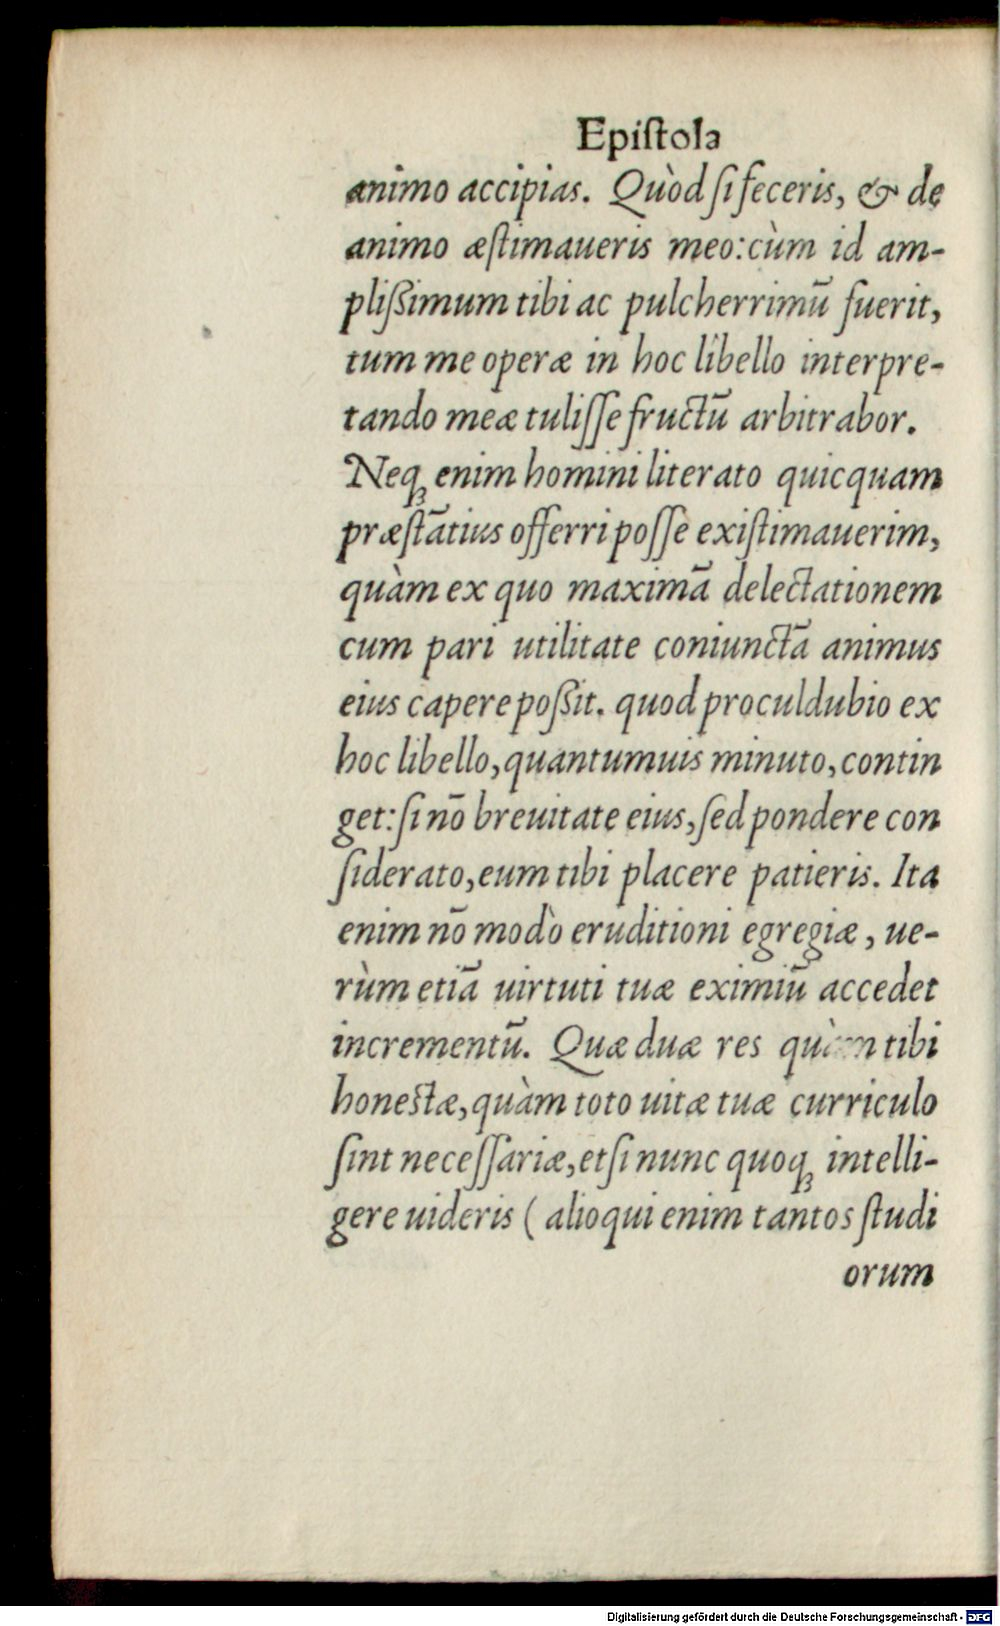 Epiſtola
animo accipias. Quòd ſi feceris, & de
animo æſtimaueris meo: cùm id am-
plißimum tibi ac pulcherrimū fuerit,
tum me operæ in hoc libello interpre-
tando meæ tuliſſe fructū arbitrabor.
Neqꝫ enim homini literato quicquam
præſtātius offerri poſſe exiſtimauerim,
quàm ex quo maximā delectationem
cum pari utilitate coniunctā animus
eius capere poßit. quod proculdubio ex
hoc libello, quantumuis minuto, contin
get: ſi nō breuitate eius, ſed pondere con
ſiderato, eum tibi placere patieris. Ita
enim nō modò eruditioni egregiæ, ue-
rùm etiā uirtuti tuæ eximiū accedet
incrementū. Quæ duæ res quàm tibi
honeſtæ, quàm toto uitæ tuæ curriculo
ſint neceſſariæ, etſi nunc quoqꝫ intelli-
gere uideris ( alioqui enim tantos ſtudi
orum
Digitalisierung gefördert durch die Deutsche Forschungsgemeinschaft - DFG